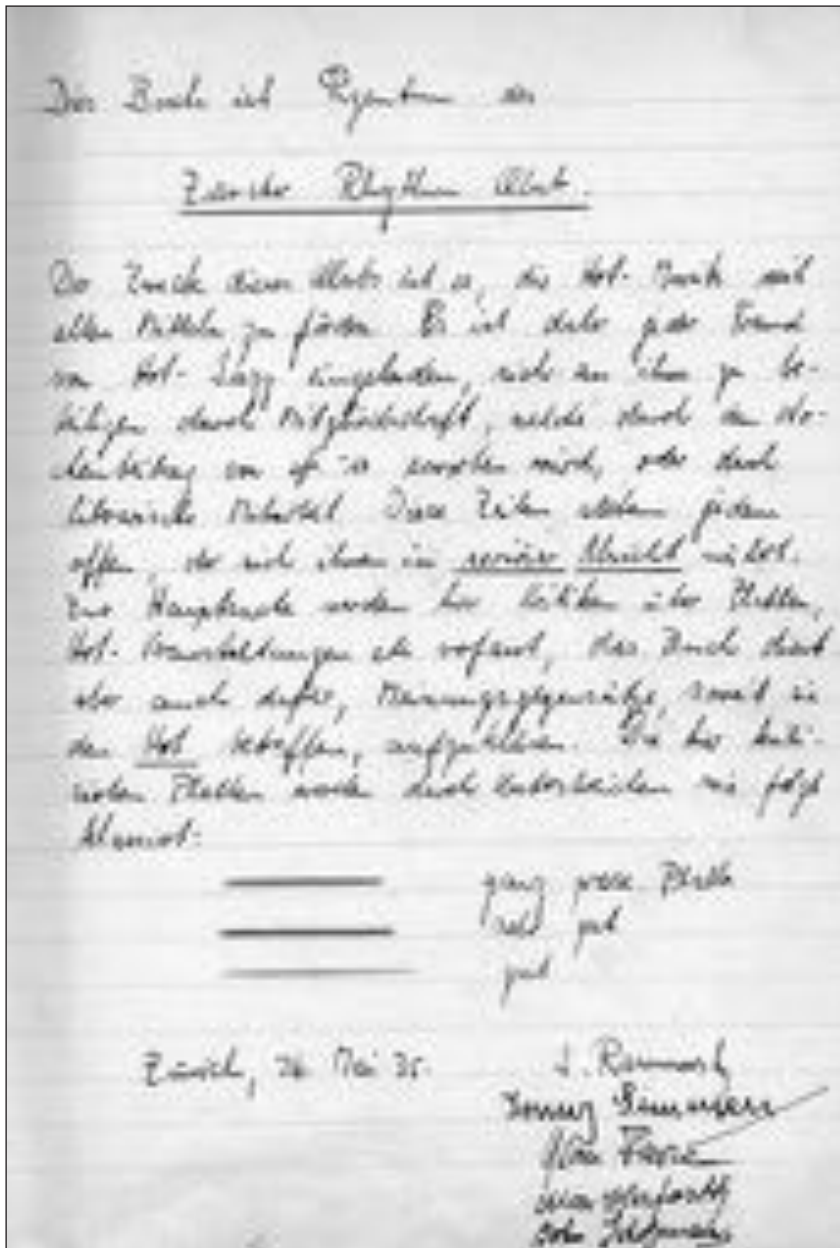 Das Buch ist Eigentum des
Zürcher Rhythm Clubs.
Der Zweck dieses Clubs ist es, die Hot-Musik mit
allen Mitteln zu fördern. Es ist daher jeder Freund
von Hot-Jazz eingeladen, sich an ihm zu be-
teiligen durch Mitgliedschaft, welche durch
von erworben wird, oder durch
literarische Mitarbeit. Diese Zeilen stehen jedem
offen, der sich ihnen in seriöser Absicht nähert.
Zur Hauptsache werden hier Kritiken über Platten,
Hot-Veranstaltungen etc verfasst, das Buch dient
aber auch dafür, Meinungsgegensätze, soweit sie
den Hot betreffen, aufzuklären. Die hier kriti-
sierten Platten werden durch Unterstreichen wie folgt
ganz grosse Platte
sehr gut
gut
Zürich, Mai 35.